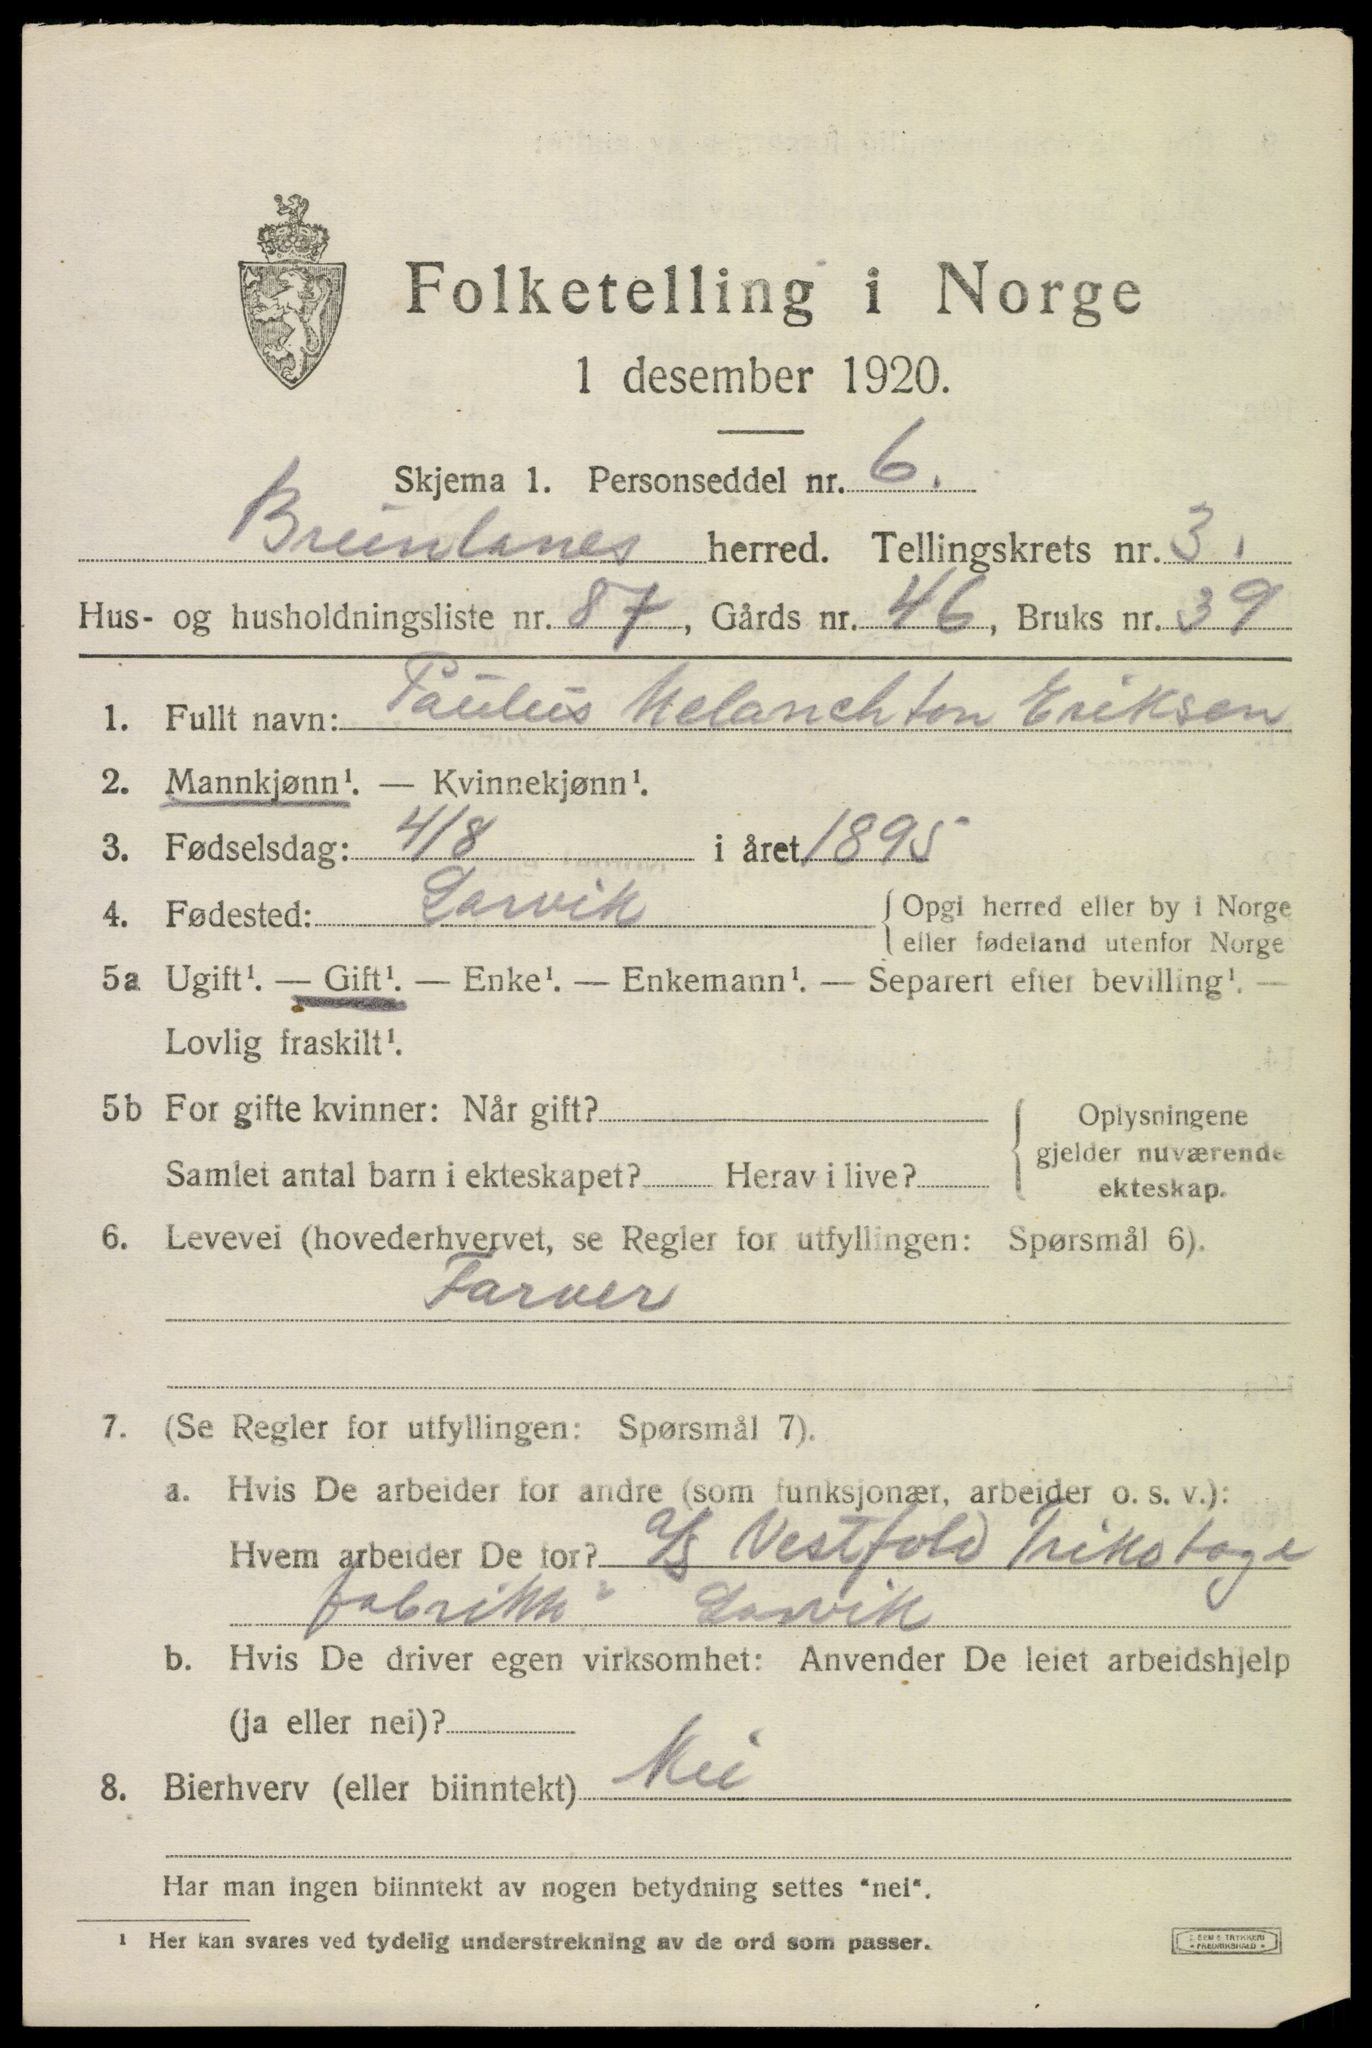 Folketelling i Norge
1 desember 1920.
Skjema 1. Personseddel nr. 6.
Brunlanes herred. Tellingskrets nr. 3.
Hus- og husholdningsliste nr. 87, Gårds nr. 46, Bruks nr. 39
1. Fullt navn: Paulus Melanchton Eriksen
2. Mannkjønn¹. — Kvinnekjønn¹.
3. Fødselsdag: 4/8 i året 1895
4. Fødested: Larvik { Opgi herred eller by i Norge
eller fødeland utenfor Norge
5a Ugift¹. — Gift¹. — Enke¹. — Enkemann¹. — Separert efter bevilling¹. —
Lovlig fraskilt¹.
5b For gifte kvinner: Når gift? { Oplysningene
gjelder nuværende
Samlet antal barn i ekteskapet? Herav i live? ekteskap.
6. Levevei (hovederhvervet, se Regler for utfyllingen: Spørsmål 6).
Farver
7. (Se Regler for utfyllingen: Spørsmål 7).
a. Hvis De arbeider for andre (som funksjonær, arbeider o. s. v.):
Hvem arbeider De for? A/S Vestfold Trikotage
fabrikk" Larvik
b. Hvis De driver egen virksomhet: Anvender De leiet arbeidshjelp
(ja eller nei)?
8. Bierhverv (eller biinntekt) Nei
Har man ingen biinntekt av nogen betydning settes "nei".
¹ Her kan svares ved tydelig understrekning av de ord som passer.
TRYKKERI
FREDRIKSHALD